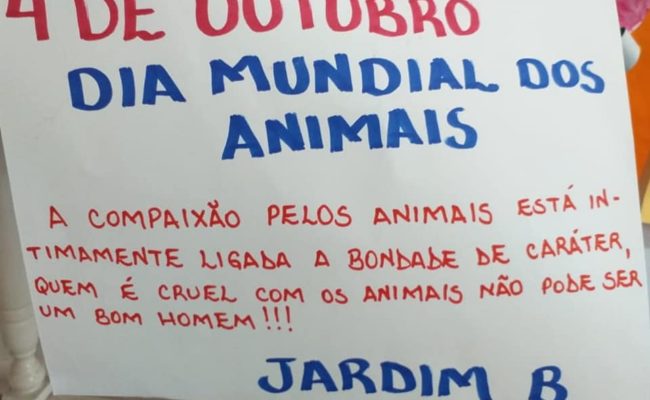 4 DE OUTUBRO
DIA MUNDIAL DOS
ANIMAIS
A COMPAIXÃO PELOS ANIMAIS ESTÁ IN-
TIMAMENTE LIGADA A BONDADE DE CARÁTER,
QUEM É CRUEL COM OS ANIMAIS NÃO PODE SER
UM BOM HOMEM!!!
JARDIM B